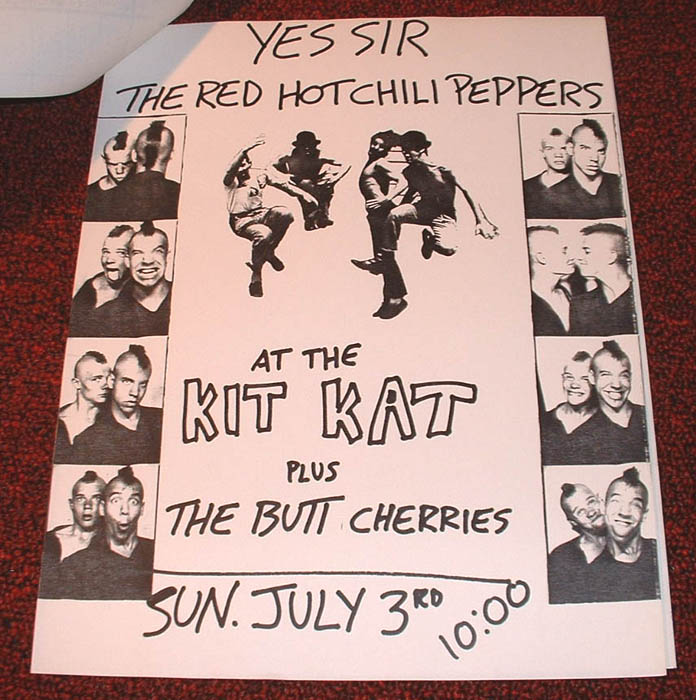 YES SIR
THE RED HOT CHILI PEPPERS
AT THE
KIT KAT
PLUS
THE BUTT CHERRIES
SUN. JULY 3RD 10:00